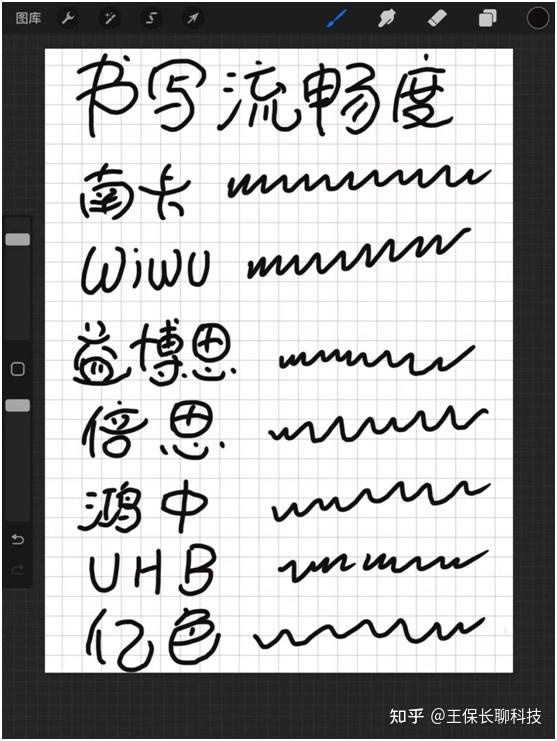 图库
书写流畅度
南卡
WiWU
益博思
倍思
鸿中
UHB
亿色
知乎 @王保长聊科技